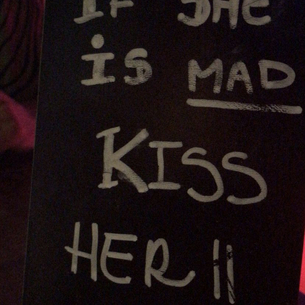 IF SHE
is MAD
KISS
HER !!